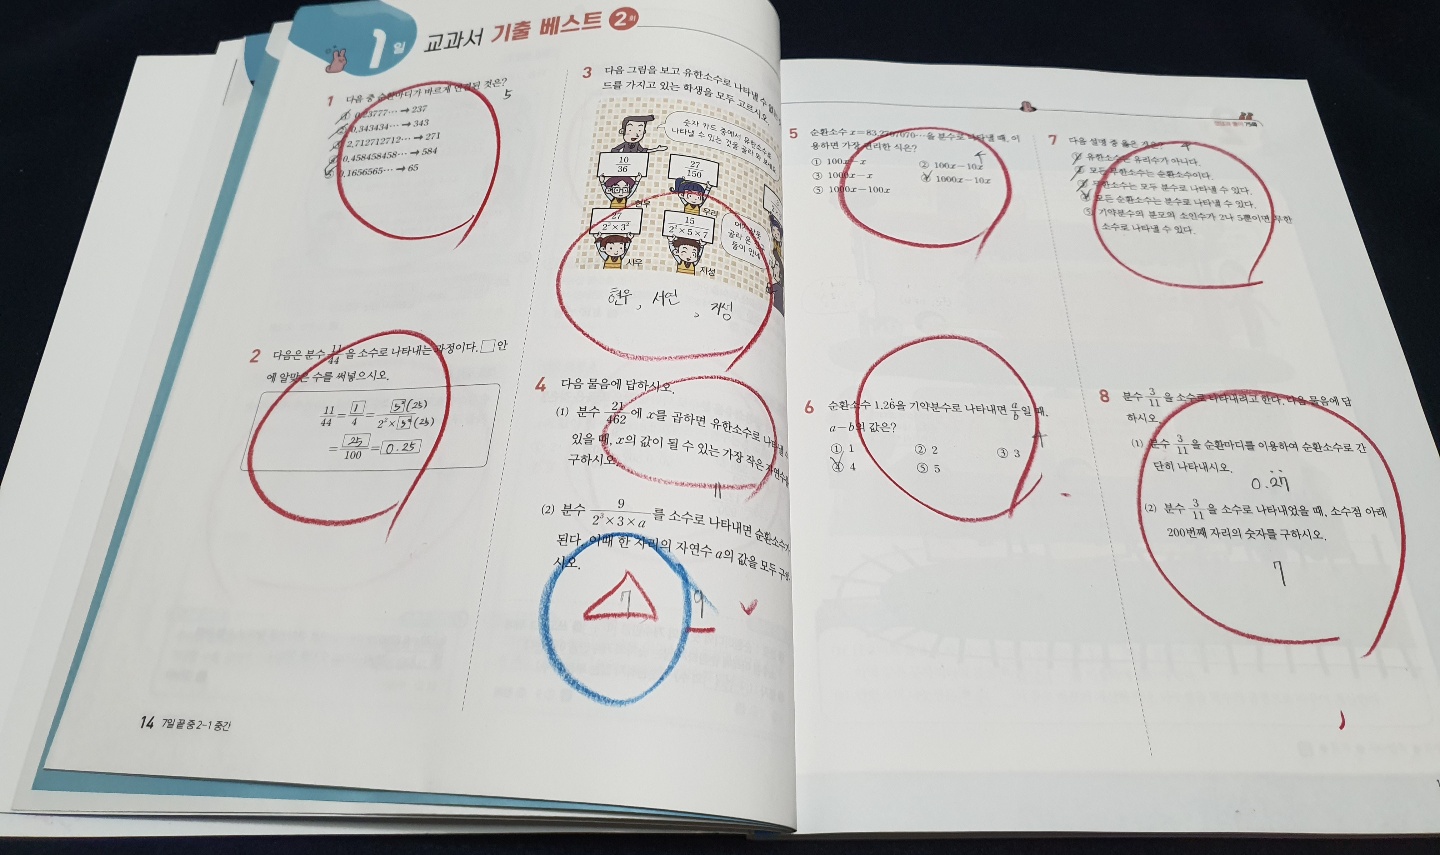 1일 교과서 기출 베스트 2회
1 다음 중 순환마디가 바르게 연결된 것은?
5
① 0.23777⋯ → 237
② 0.343434⋯ → 343
③ 2.712712712⋯ → 271
④ 0.458458458⋯ → 584
⑤ 0.1656565⋯ → 65
2 다음은 분수 11/44 을 소수로 나타내는 과정이다. □ 안
에 알맞은 수를 써넣으시오.
11/44 = 1/4 = 5²(25)/2²×5²(25)
= 25/100 = 0.25
3 다음 그림을 보고 유한소수로 나타낼 수 없는
드를 가지고 있는 학생을 모두 고르시오.
숫자 카드 중에서 유한소수로
나타낼 수 있는 것을 골라 와 보세요.
10/36
27/150
현우
우리
27/2²×3²
15/2²×5×7
시우
지성
현우, 서연, 지성
4 다음 물음에 답하시오.
(1) 분수 21/462 에 x를 곱하면 유한소수로 나타낼
있을 때, x의 값이 될 수 있는 가장 작은 자연수를
구하시오.
11
(2) 분수 9/2³×3×a 를 소수로 나타내면 순환소수가
된다. 이때 한 자리의 자연수 a의 값을 모두 구하
시오.
7 9
14 7일 끝 중 2-1 중간
5 순환소수 x=83.2707070⋯을 분수로 나타낼 때, 이
용하면 가장 편리한 식은?
4
① 100x-x ② 100x-10x
③ 1000x-x ④ 1000x-10x
⑤ 1000x-100x
6 순환소수 1.26̇을 기약분수로 나타내면 a/b일 때,
a-b의 값은?
4
① 1 ② 2 ③ 3
④ 4 ⑤ 5
7 다음 설명 중 옳은 것은?
4
① 유한소수는 유리수가 아니다.
② 모든 무한소수는 순환소수이다.
③ 무한소수는 모두 분수로 나타낼 수 있다.
④ 모든 순환소수는 분수로 나타낼 수 있다.
⑤ 기약분수의 분모의 소인수가 2나 5뿐이면 무한
소수로 나타낼 수 있다.
8 분수 3/11 을 소수로 나타내려고 한다. 다음 물음에 답
하시오.
(1) 분수 3/11 을 순환마디를 이용하여 순환소수로 간
단히 나타내시오.
0.2̇7̇
(2) 분수 3/11 을 소수로 나타내었을 때, 소수점 아래
200번째 자리의 숫자를 구하시오.
7